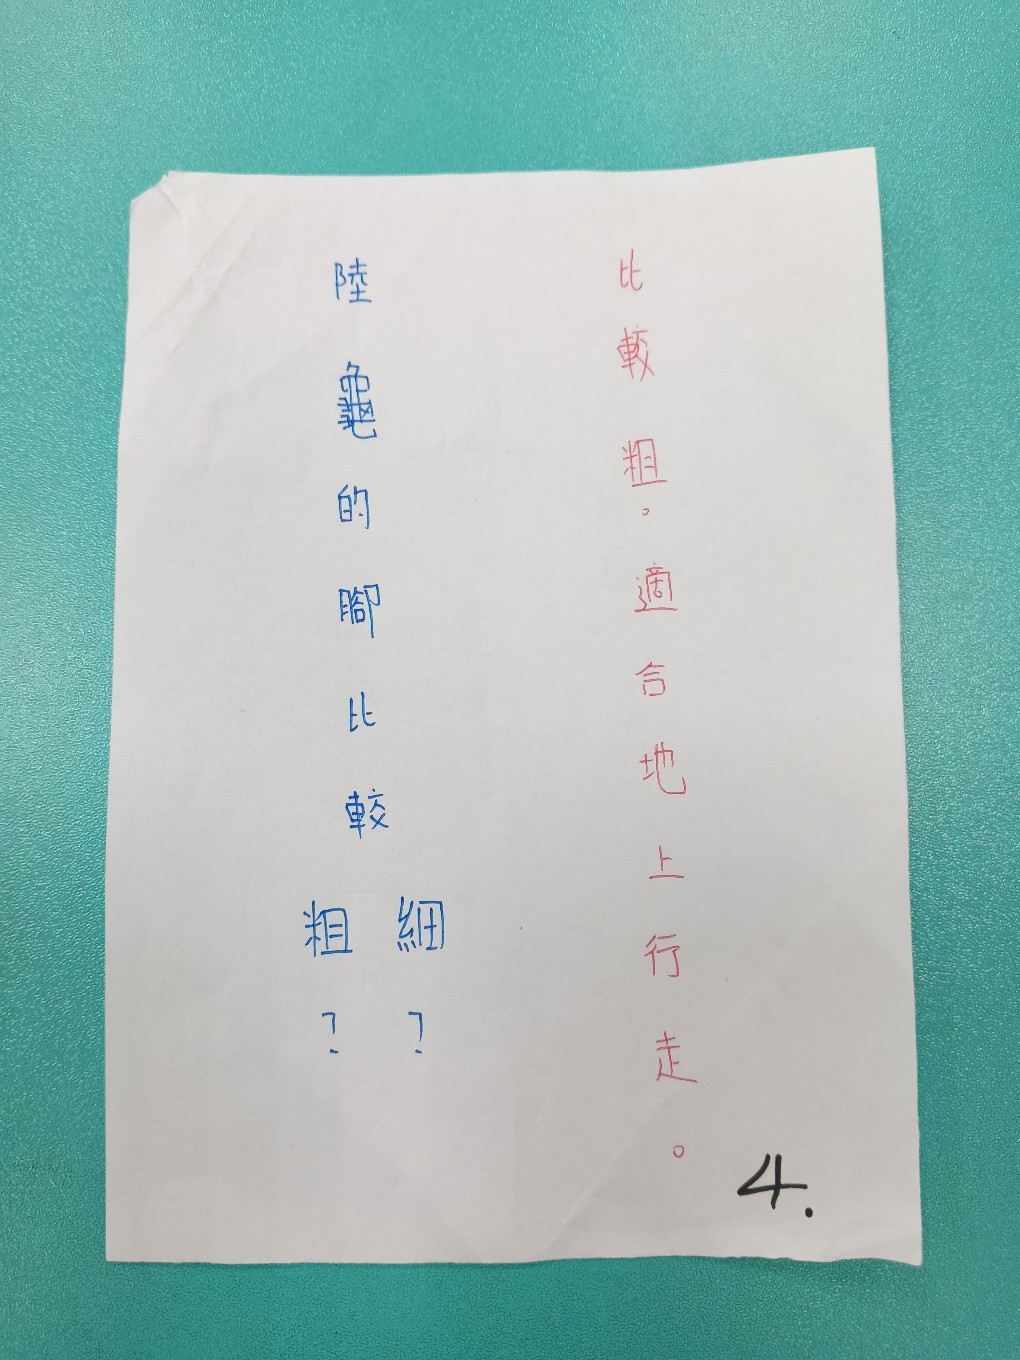 陸龜的腳比較
粗？
細？
比較粗。適合地上行走。
4.